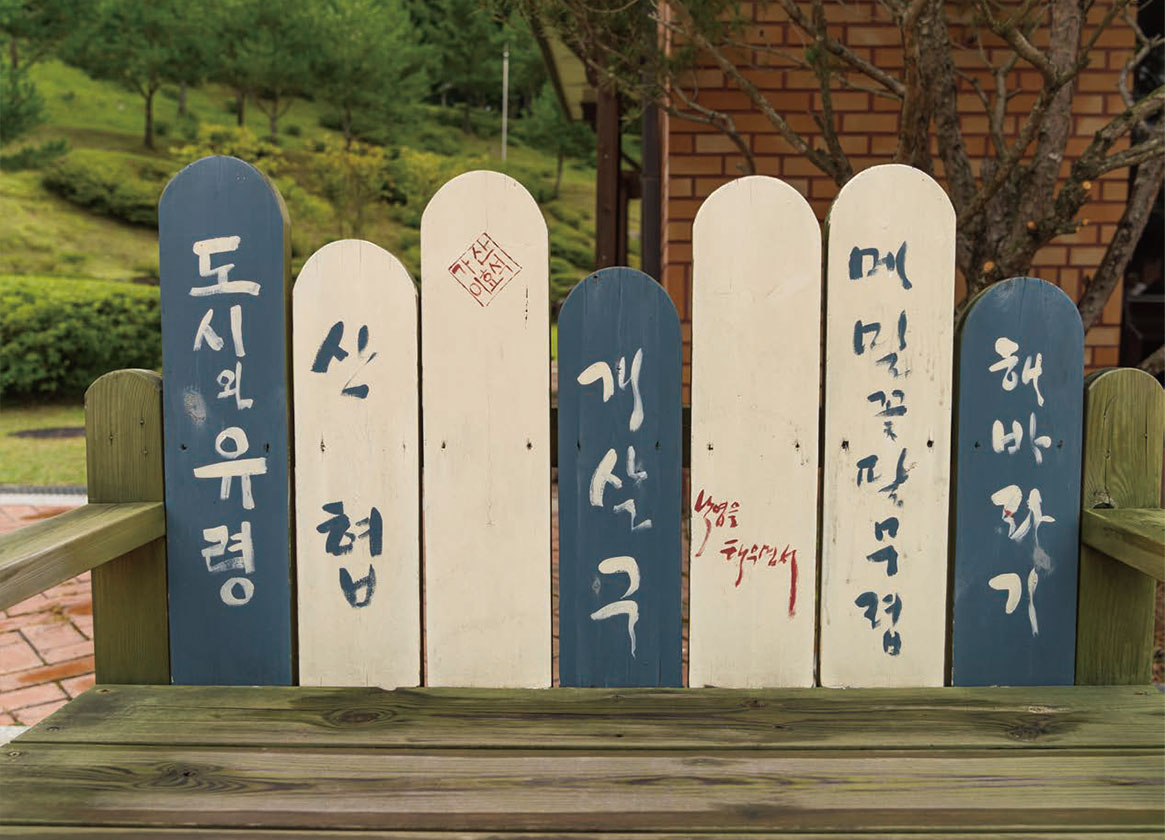 도시와유령
산협
가산
이효석
개살구
낙엽을
태우면서
메밀꽃필무렵
해바라기